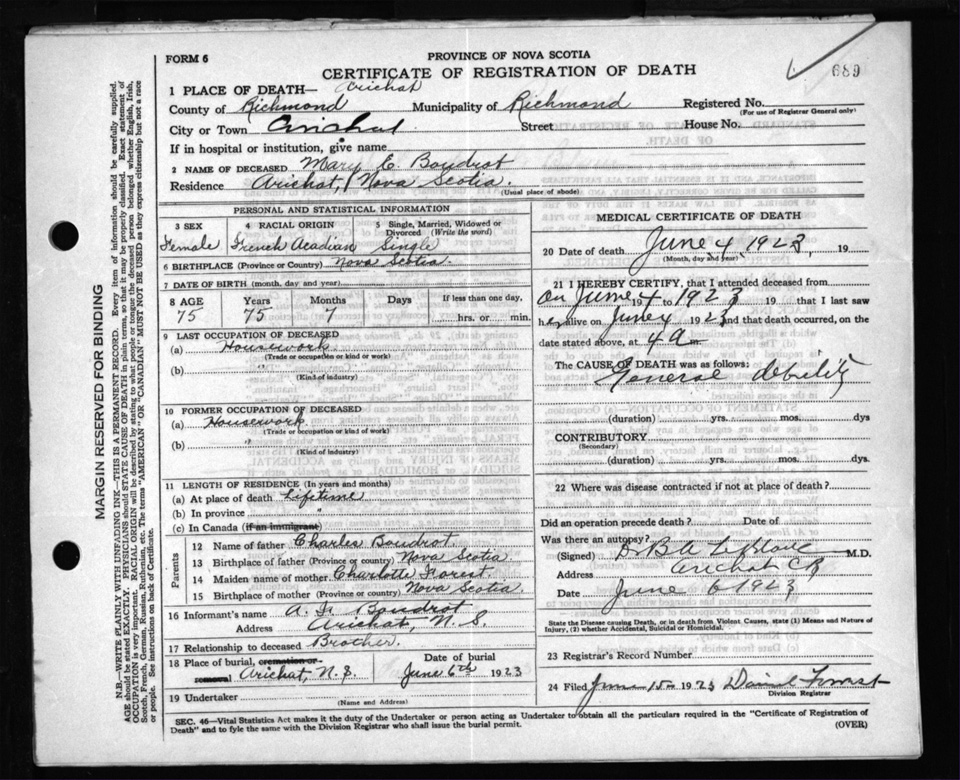 FORM 6
PROVINCE OF NOVA SCOTIA
CERTIFICATE OF REGISTRATION OF DEATH
689
1 PLACE OF DEATH— Arichat
County of Richmond Municipality of Richmond Registered No.
(For use of Registrar General only)
City or Town Arichat Street House No.
If in hospital or institution, give name
2 NAME OF DECEASED Mary C. Boudrot
Residence Arichat, Nova Scotia.
(Usual place of abode)
PERSONAL AND STATISTICAL INFORMATION
3 SEX 4 RACIAL ORIGIN 5 Single, Married, Widowed or Divorced (Write the word)
Female French Acadian Single
6 BIRTHPLACE (Province or Country) Nova Scotia.
7 DATE OF BIRTH (month, day and year)
8 AGE Years Months Days If less than one day,
75 75 7 hrs. or min.
9 LAST OCCUPATION OF DECEASED
(a) Housework
(Trade or occupation or kind or work)
(b)
(Kind of industry)
10 FORMER OCCUPATION OF DECEASED
(a) Housework
(Trade or occupation or kind or work)
(b) "
(Kind of industry)
11 LENGTH OF RESIDENCE (In years and months)
(a) At place of death Lifetime
(b) In province "
(c) In Canada (if an immigrant)
Parents
12 Name of father Charles Boudrot.
13 Birthplace of father (Province or country) Nova Scotia.
14 Maiden name of mother Charlotte Forest.
15 Birthplace of mother (Province or country) Nova Scotia.
16 Informant's name Boudrot
Address Arichat, N. S.
17 Relationship to deceased Brother.
18 Place of burial, cremation or removal Date of burial
Arichat, N. S. June 6th 1923
19 Undertaker
(Name and Address)
MEDICAL CERTIFICATE OF DEATH
20 Date of death June 4, 1923, 19
(Month, day and year)
21 I HEREBY CERTIFY, that I attended deceased from
On June 4 19 to 1923 19 that I last saw
her alive on June 4 1923 and that death occurred, on the
date stated above, at 4 a m
The CAUSE OF DEATH was as follows:
General debility
(duration) yrs. mos. dys
CONTRIBUTORY
(Secondary)
(duration) yrs. mos. dys.
22 Where was disease contracted if not at place of death?
Did an operation precede death? Date of
Was there an autopsy?
(Signed) Dr B A LeBlanc M.D.
Address Arichat CB
Date June 6 1923
State the Disease causing Death, or in death from Violent Causes, state (1) Means and Nature of Injury, (2) whether Accidental, Suicidal or Homicidal.
23 Registrar's Record Number
24 Filed June 15 1923 Daniel Forrest
Division Registrar
SEC. 46—Vital Statistics Act makes it the duty of the Undertaker or person acting as Undertaker to obtain all the particulars required in the "Certificate of Registration of
Death" and to fyle the same with the Division Registrar who shall issue the burial permit.
(OVER)
MARGIN RESERVED FOR BINDING
N.B.—WRITE PLAINLY WITH UNFADING INK—THIS IS A PERMANENT RECORD. Every item of information should be carefully supplied.
AGE should be stated EXACTLY. PHYSICIANS should STATE CAUSE OF DEATH in plain terms, so that it may be properly classified. Exact statement of
OCCUPATION is very important. RACIAL ORIGIN will be described by stating to what people or tongue the deceased person belonged whether English, Irish,
Scotch, French, German, Russian, Ruthenian, etc. The terms "AMERICAN" OR "CANADIAN" MUST NOT BE USED as they express citizenship but not a race
or people. See instructions on back of Certificate.